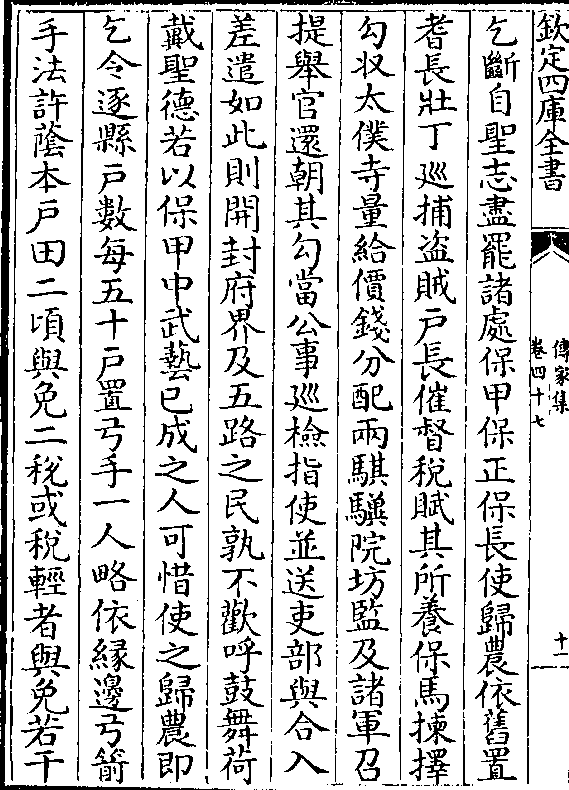 欽定四庫全書
傳家集
卷四十七
十一
乞斷自聖志盡罷諸處保甲保正保長使歸農依舊置
耆長壯丁巡捕盜賊戶長催督稅賦其所養保馬揀擇
勾收太僕寺量給價錢分配兩騏驥院坊監及諸軍召
提舉官還朝其勾當公事巡檢指使並送吏部與合入
差遣如此則開封府界及五路之民孰不歡呼鼓舞荷
戴聖德若以保甲中武藝已成之人可惜使之歸農即
乞令逐縣戶數每五十戶置弓手一人略依緣邊弓箭
手法許蔭本戶田二頃與免二稅或稅輕者與免若干